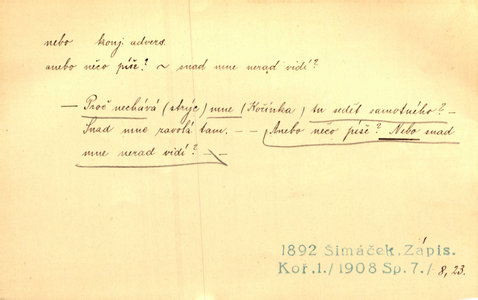 nebo konj. advers.
anebo něco píše? ~ snad mne nerad vidí?
— Proč nechává (strýc) mne (Kořínka) tu sedět samotného? —
Snad mne zavolá tam. — — Anebo něco píše? Nebo snad
mne nerad vidí? —
1892 Šimáček. Zápis.
Koř.1./1908 Sp.7./ 8, 23.